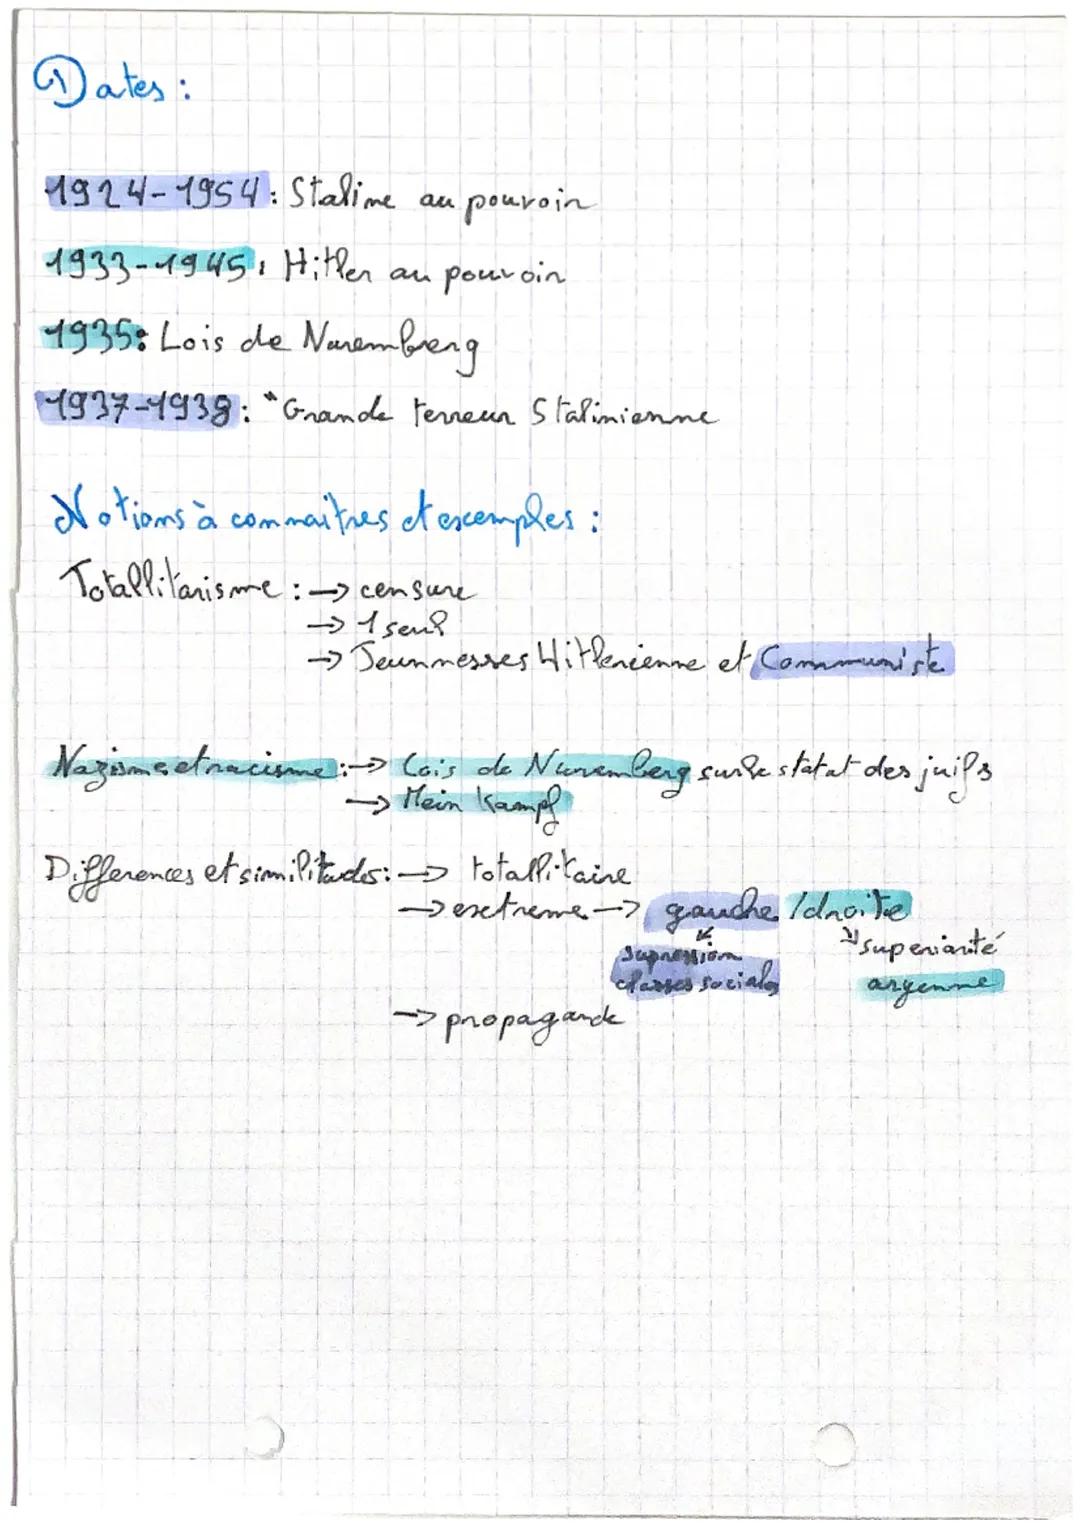 Dates :
1924-1954 : Staline au pouvoir
1933-1945 : Hitler au pouvoir
1935 : Lois de Nuremberg
1937-1938 : "Grande terreur Stalinienne
Notions à connaitres et exemples :
Totallitarisme : → censure
→ 1 seul
→ Jeunnesses Hitlerienne et Communiste
Nazisme et racisme : → Lois de Nuremberg sur le statut des juifs
→ Mein Kampf
Differences et similitudes : → totallitaire
→ extreme → gauche / droite
↙ ↘ superiarité
supression
classes sociales aryenne
→ propagande